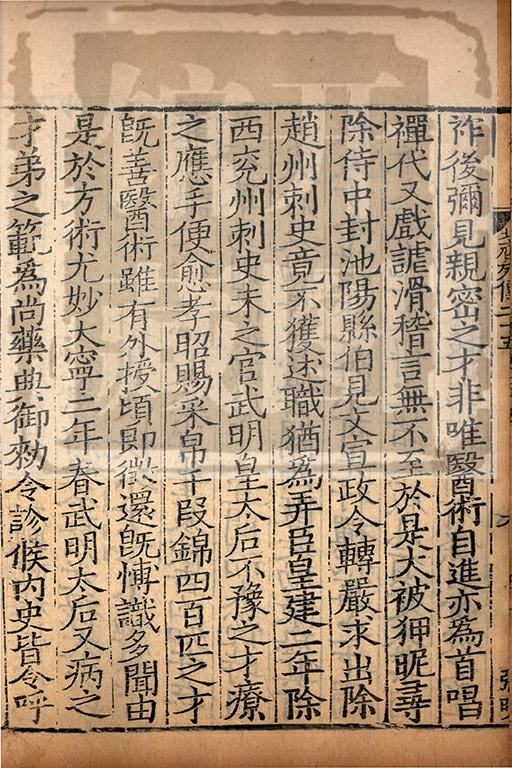 祚後彌見親密之才非唯醫術自進亦為首唱
禪代又戲謔滑稽言無不至於是大被狎昵尋
除侍中封池陽縣伯見文宣政令轉嚴求出除
趙州刺史竟不獲述職猶為弄臣皇建二年除
西兖州刺史未之官武明皇太后不豫之才療
之應手便愈孝昭賜采帛千段錦四百匹之才
旣善醫術雖有外授頃即徵還旣博識多聞由
是於方術尤妙大寧二年春武明太后又病之
才弟之範為尚藥典御勑令診候內史皆令呼